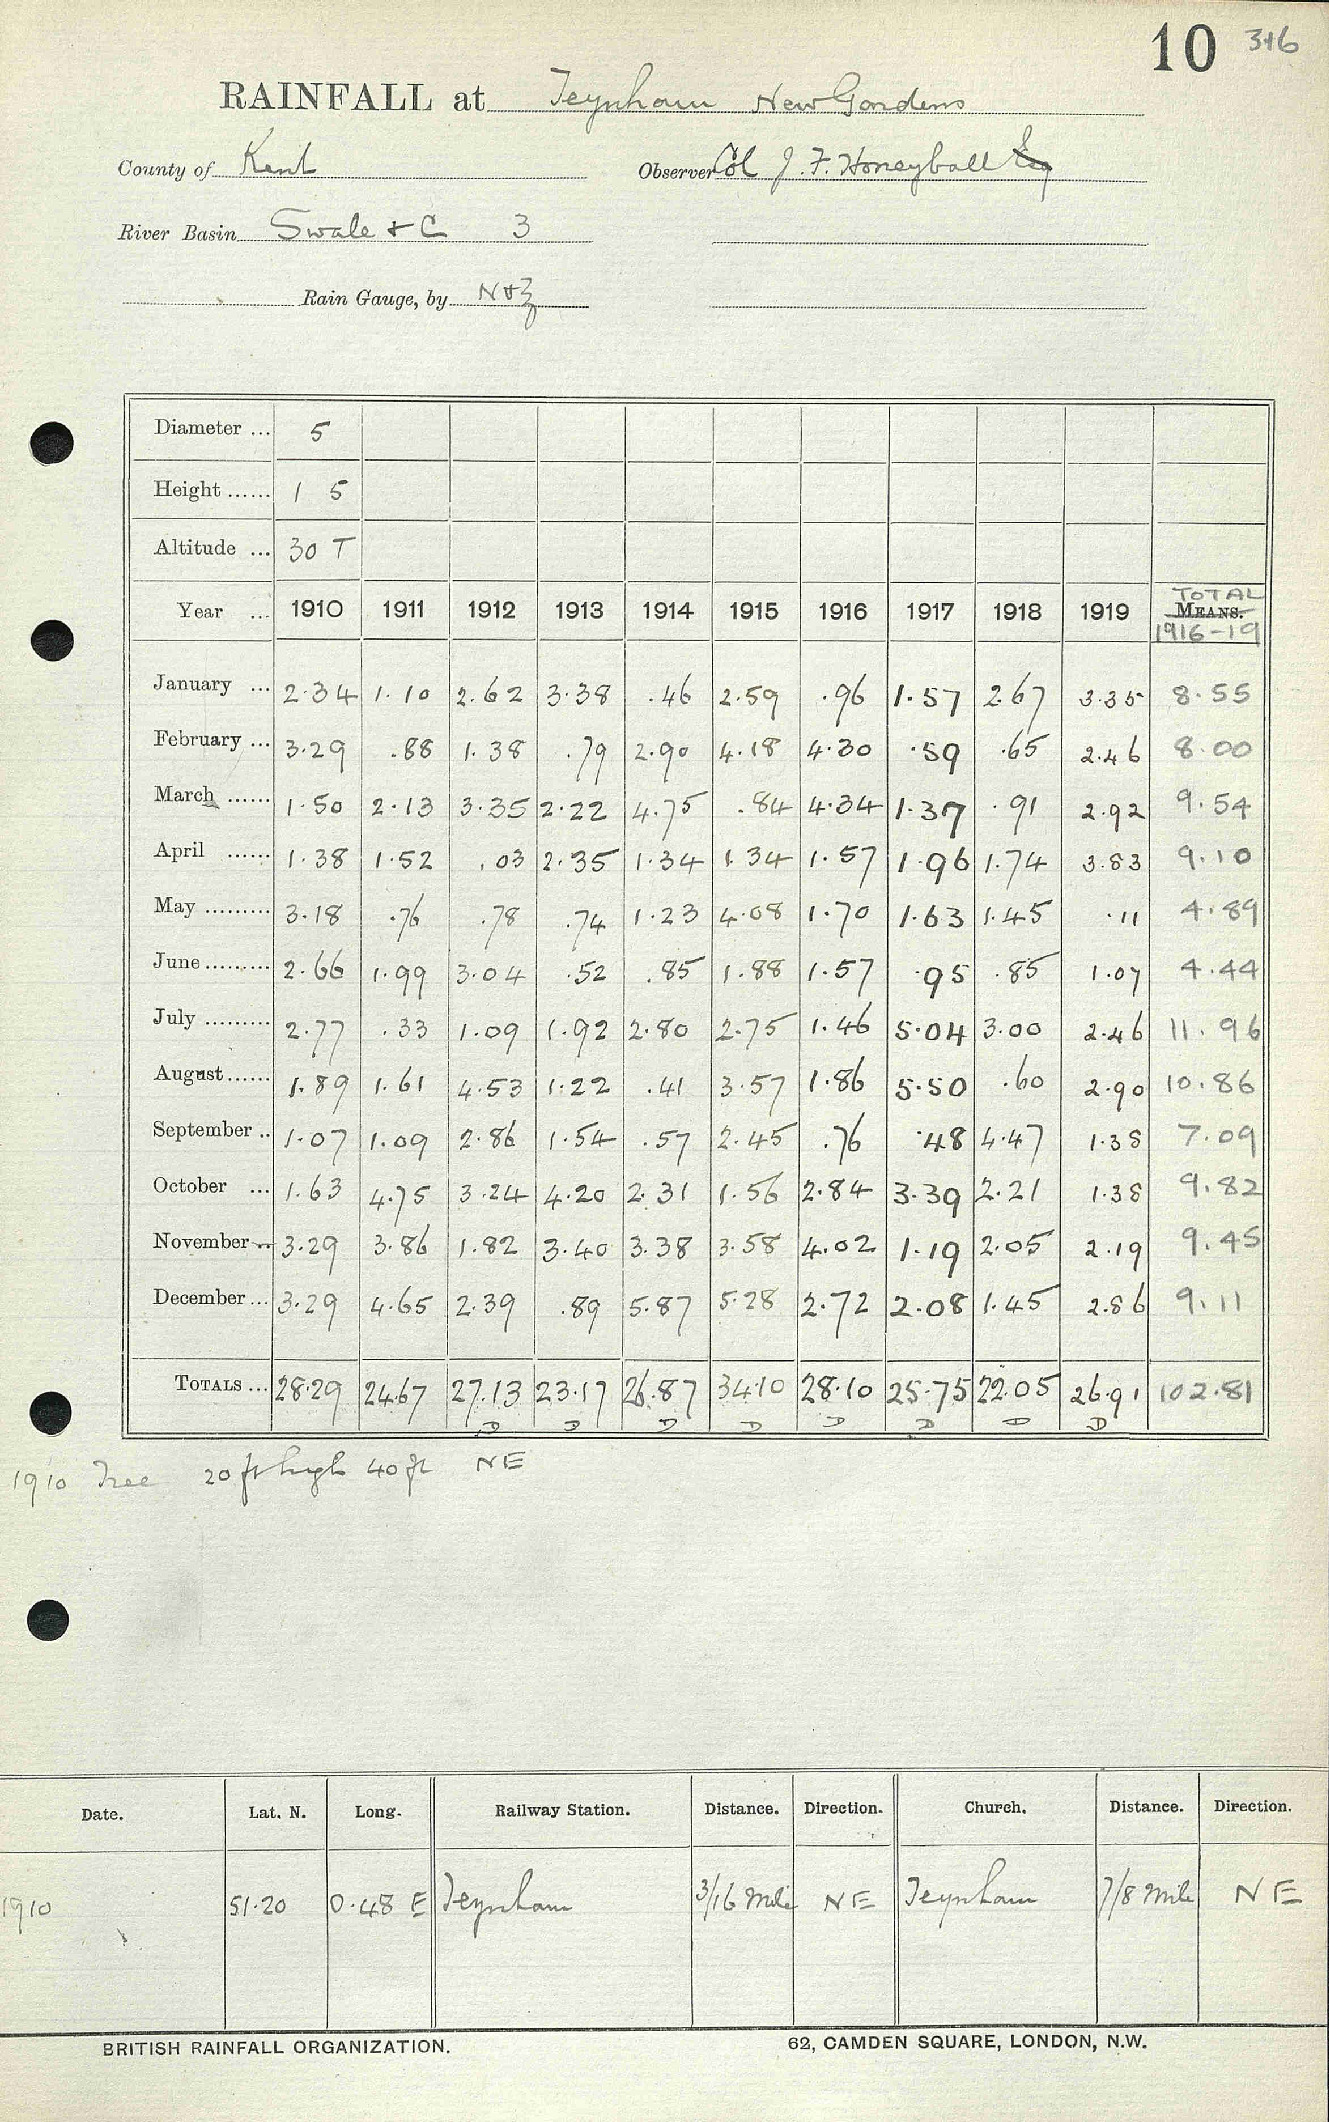 10 346
RAINFALL at Teynham New Gardens
County of Kent Observer Col J. F. Honeyball Esq
River Basin Swale & C 3
Rain Gauge, by N & Z
Diameter ... 5
Height ...... 1 5
Altitude ... 30 T
TOTAL
Year ... 1910 1911 1912 1913 1914 1915 1916 1917 1918 1919 MEANS.
1916-19
January ... 2.34 1.10 2.62 3.38 .46 2.59 .96 1.57 2.67 3.35 8.55
February ... 3.29 .88 1.38 .79 2.90 4.18 4.30 .59 .65 2.46 8.00
March ...... 1.50 2.13 3.35 2.22 4.75 .84 4.34 1.37 .91 2.92 9.54
April ...... 1.38 1.52 .03 2.35 1.34 1.34 1.57 1.96 1.74 3.83 9.10
May ......... 3.18 .76 .78 .74 1.23 4.08 1.70 1.63 1.45 .11 4.89
June ......... 2.66 1.99 3.04 .52 .85 1.88 1.57 .95 .85 1.07 4.44
July ......... 2.77 .33 1.09 1.92 2.80 2.75 1.46 5.04 3.00 2.46 11.96
August ...... 1.89 1.61 4.53 1.22 .41 3.57 1.86 5.50 .60 2.90 10.86
September .. 1.07 1.09 2.86 1.54 .57 2.45 .76 .48 4.47 1.38 7.09
October ... 1.63 4.75 3.24 4.20 2.31 1.56 2.84 3.39 2.21 1.38 9.82
November ... 3.29 3.86 1.82 3.40 3.38 3.58 4.02 1.19 2.05 2.19 9.45
December ... 3.29 4.65 2.39 .89 5.87 5.28 2.72 2.08 1.45 2.86 9.11
TOTALS ... 28.29 24.67 27.13 23.17 26.87 34.10 28.10 25.75 22.05 26.91 102.81
D D D D D D D D
1910 Tree 20 ft high 40 ft NE
Date. Lat. N. Long. Railway Station. Distance. Direction. Church. Distance. Direction.
1910 51.20 0.48 E Teynham 3/16 Mile NE Teynham 7/8 Mile NE
BRITISH RAINFALL ORGANIZATION. 62, CAMDEN SQUARE, LONDON, N.W.